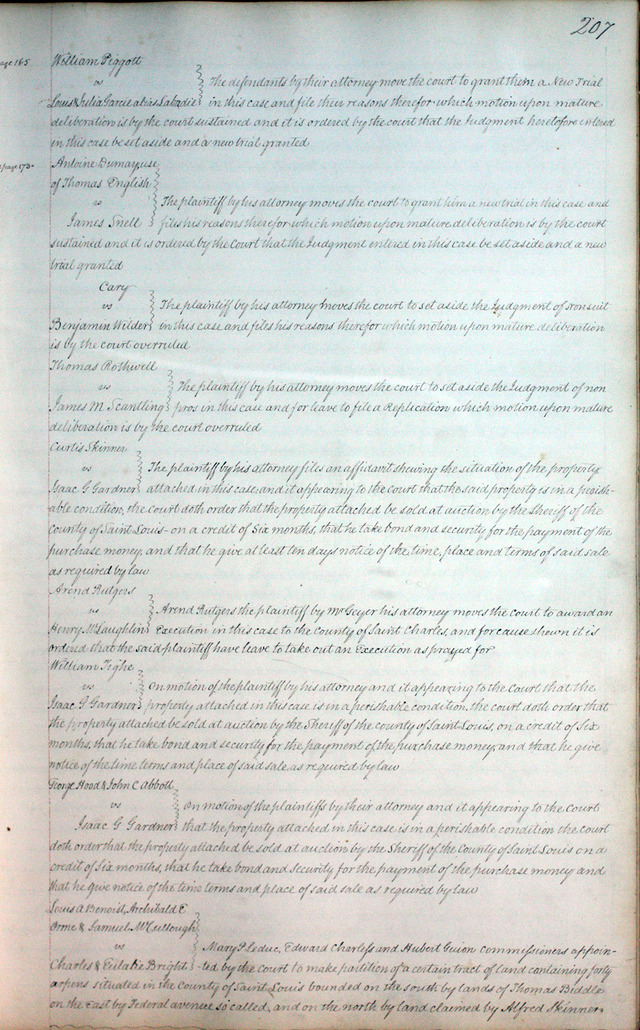 207
William Piggott
page 165
vs The defendants by their attorney move the court to grant them a New Trial
Louis & Julia Garcie alias Labadie in this case and file their reasons therefor which motion upon mature
deliberation is by the court sustained and it is ordered by the court that the Judgment heretofore entered
in this case be set aside and a new trial granted
Antoine Dumay use
page 173
of Thomas English
vs The plaintiff by his attorney moves the court to grant him a new trial in this case and
James Snell files his reasons therefor which motion upon mature deliberation is by the court
sustained and it is ordered by the Court that the Judgment entered in this case be set aside and a new
trial granted
Cary
vs The plaintiff by his attorney moves the court to set aside the Judgment of nonsuit
Benjamin Wilder in this case and files his reasons therefor which motion upon mature deliberation
is by the court overruled
Thomas Rothwell
vs The plaintiff by his attorney moves the court to set aside the Judgment of non
James M. Scantling pros in this case and for leave to file a Replication which motion upon mature
deliberation is by the court overruled
Curtis Skinner
vs The plaintiff by his attorney files an affidavit shewing the situation of the property
Isaac G Gardner attached in this case, and it appearing to the court that the said property is in a perish-
able condition, the court doth order that the property attached be sold at auction by the Sheriff of the
county of Saint Louis on a credit of Six months, that he take bond and security for the payment of the
purchase money, and that he give at least ten days notice of the time, place and terms of said sale
as required by law
Arend Rutgers
vs Arend Rutgers the plaintiff by Mr Geyer his attorney moves the court to award an
Henry McLaughlin Execution in this case to the county of Saint Charles, and for cause shewn it is
ordered that the said plaintiff have leave to take out an Execution as prayed for
William Tighe
vs On motion of the plaintiff by his attorney and it appearing to the Court that the
Isaac G Gardner property attached in this case is in a perishable condition, the court doth order that
the property attached be sold at auction by the Sheriff of the county of Saint Louis, on a credit of Six
months, that he take bond and security for the payment of the purchase money, and that he give
notice of the time terms and place of said sale as required by law
George Hood & John C Abbott
vs On motion of the plaintiffs by their attorney and it appearing to the Court
Isaac G Gardner that the property attached in this case is in a perishable condition the court
doth order that the property attached be sold at auction by the Sheriff of the County of Saint Louis on a
credit of Six months, that he take bond and Security for the payment of the purchase money and
that he give notice of the time terms and place of said sale as required by law
Louis A Benoist, Archibald E
Orme & Samuel McCullough
vs Mary P. Leduc, Edward Charless and Hubert Guion Commissioners appoin-
Charles & Eulalie Bright ted by the court to make partition of a certain tract of land containing forty
arpens situated in the County of Saint Louis bounded on the south by lands of Thomas Biddle
on the East by Federal avenue so called, and on the north by land claimed by Alfred Skinner